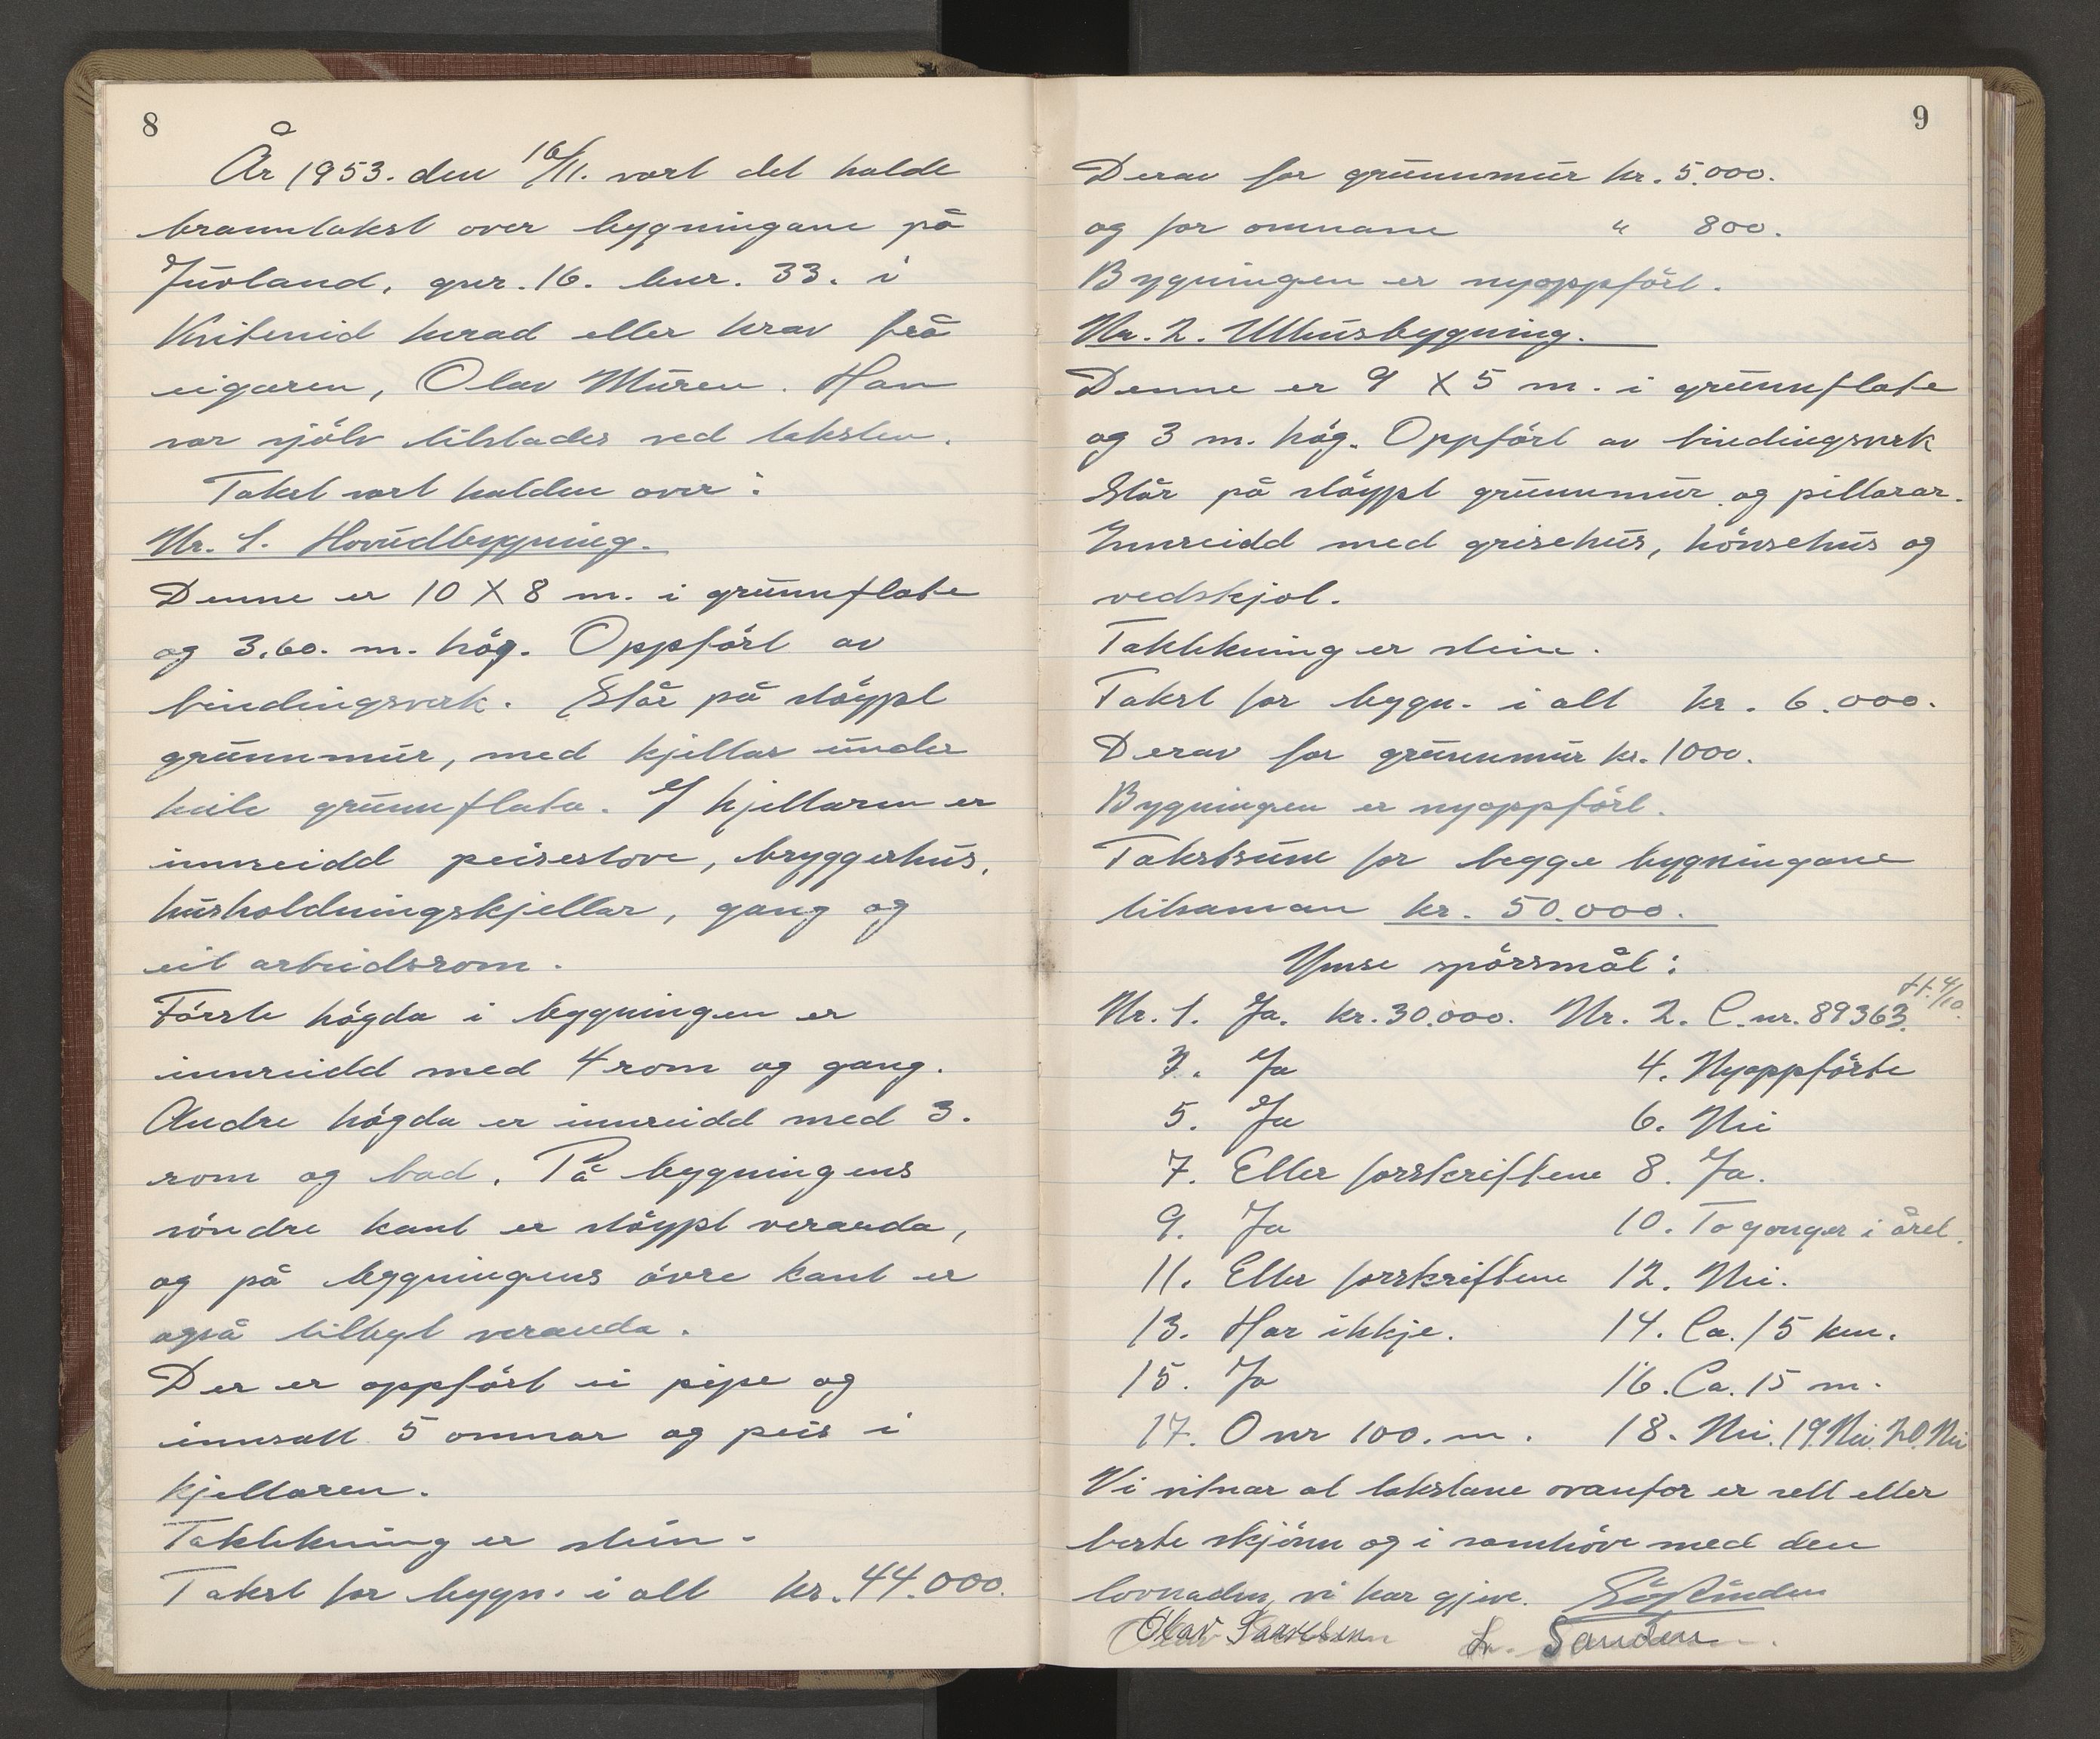 8
År 1953. den 16/11. vart det halde
branntakst over bygningane på
Juvland, gnr. 16. bnr. 33. i
Kviteseid herad etter krav frå
eigaren, Olav Muren. Han
var sjölv tilstades ved taksten.
Takst vart halden over:
Nr. 1. Hovudbygning.
Denne er 10 X 8 m. i grunnflate
og 3.60. m. hög. Oppfört av
bindingsverk. Står på stöypt
grunnmur, med kjellar under
heile grunnflata. I kjellaren er
innreidd peisestove, bryggerhus,
husholdningskjellar, gang og
eit arbeidsrom.
Förste högda i bygningen er
innreidd med 4 rom og gang.
Andre högda er innreidd med 3.
rom og bad. På bygningens
söndre kant er stöypt veranda,
og på bygningens övre kant er
også tilbygt veranda.
Der er oppfört ei pipe og
innsatt 5 omnar og peis i
kjellaren.
Taktekning er stein.
Takst for bygn. i alt kr. 44.000.
9
Derav for grunnmur kr. 5.000.
og for omnane " 800.
Bygningen er nyoppfört.
Nr. 2. Uthusbygning.
Denne er 9 X 5 m. i grunnflate
og 3 m. hög. Oppfört av bindingsverk
Står på stöypt grunnmur og pillarar.
Innreidd med grisehus, hönsehus og
vedskjol.
Taktekning er stein.
Takst for bygn. i alt kr. 6.000.
Derav for grunnmur kr. 1000.
Bygningen er nyoppfört.
Takstsum for begge bygningane
tilsaman kr. 50.000.
Ymse spörsmål:
Nr. 1. Ja. kr. 30.000. Nr. 2. C. nr. 89363.
3. Ja 4. Nyoppförte
5. Ja 6. Nei
7. Etter forskriftene 8. Ja.
9. Ja 10. To gonger i året.
11. Etter forskriftene 12. Nei.
13. Har ikkje. 14. Ca. 15 km.
15. Ja 16. Ca. 15 m.
17. Over 100. m. 18. Nei. 19. Nei. 20. Nei
Vi vitnar at takstane ovanfor er sett etter
beste skjönn og i samhöve med den
lovnaden, vi har gjeve.
Olav L. Sanden